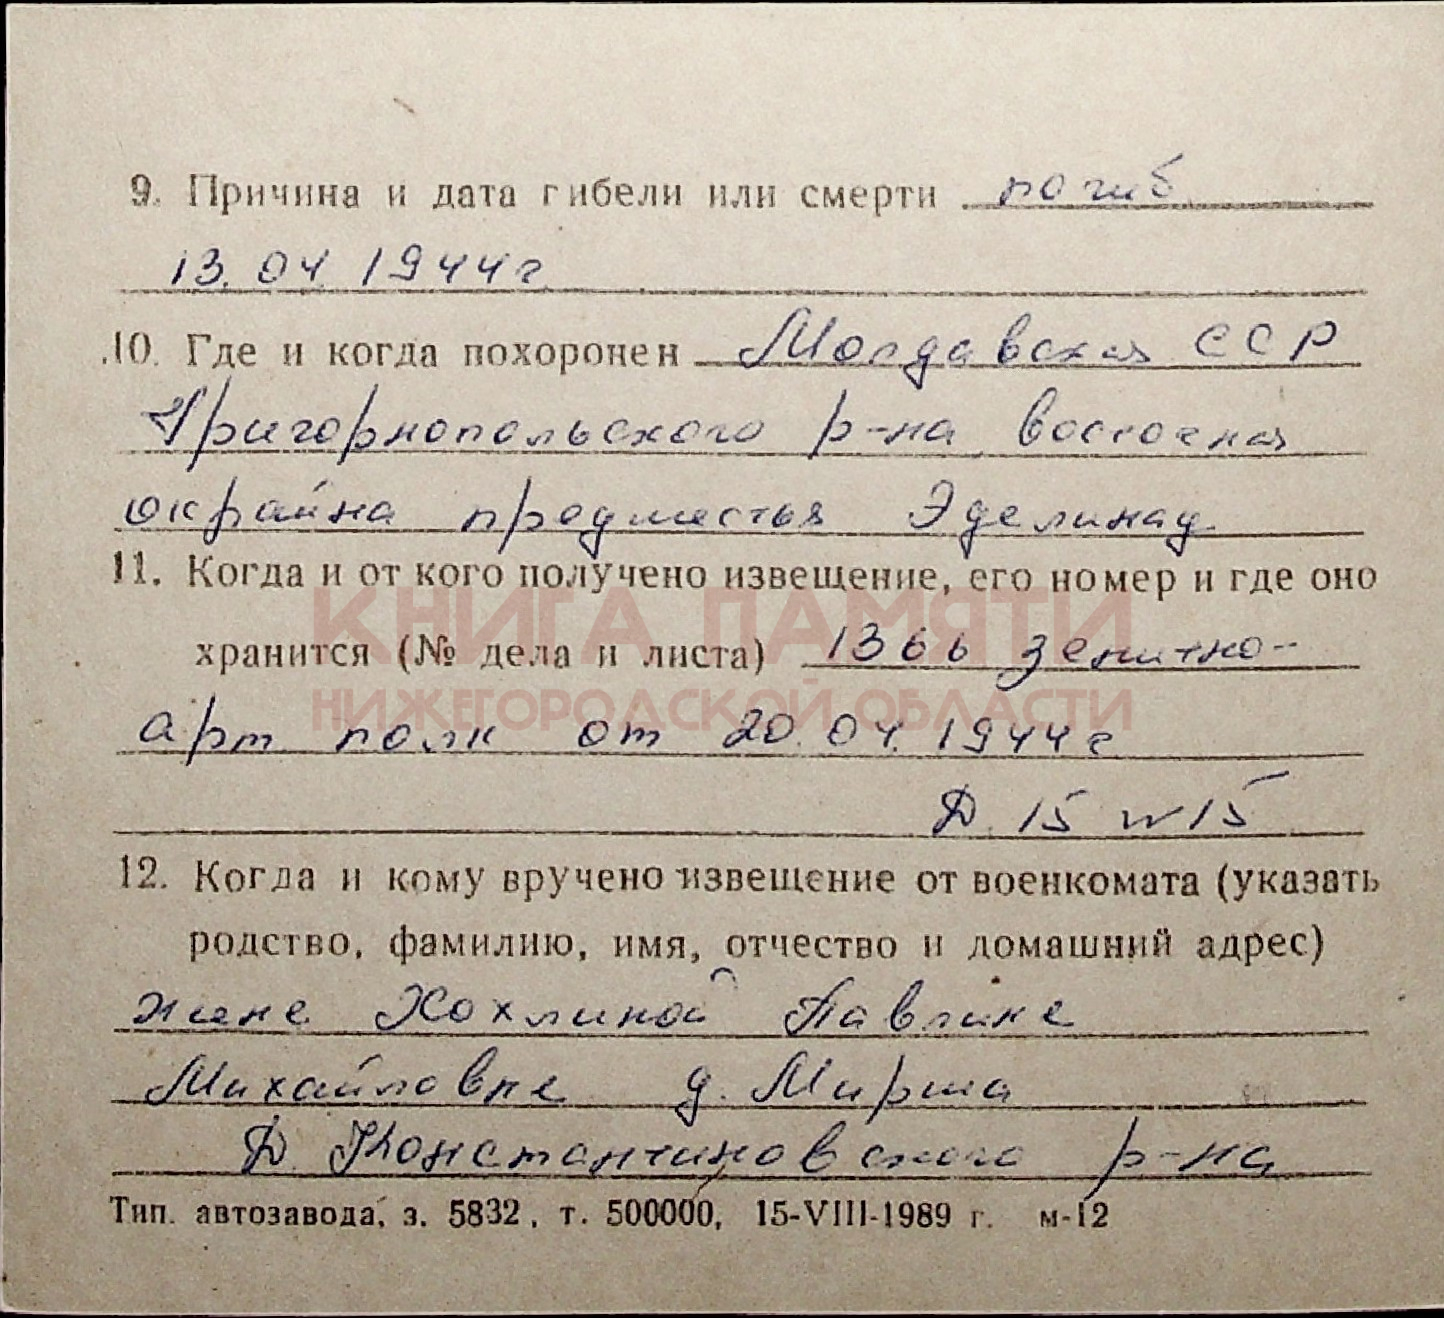 9. Причина и дата гибели или смерти погиб
13.04.1944г
10. Где и когда похоронен Молдавская ССР
Григорнопольского р-на восточная
окрайна предместья Эделинад
11. Когда и от кого получено извещение, его номер и где оно
КНИГА ПАМЯТИ
хранится (№ дела и листа) 1366 зенитно-
НИЖЕГОРОДСКОЙ ОБЛАСТИ
арт полк от 20.04.1944г
Д. 15 15
12. Когда и кому вручено извещение от военкомата (указать
родство, фамилию, имя, отчество и домашний адрес)
жене Хохлиной Павлине
Михайловне д. Мирша
Д. Константиновского р-на
Тип. автозавода, з. 5832, т. 500000, 15-VIII-1989 г. м-12